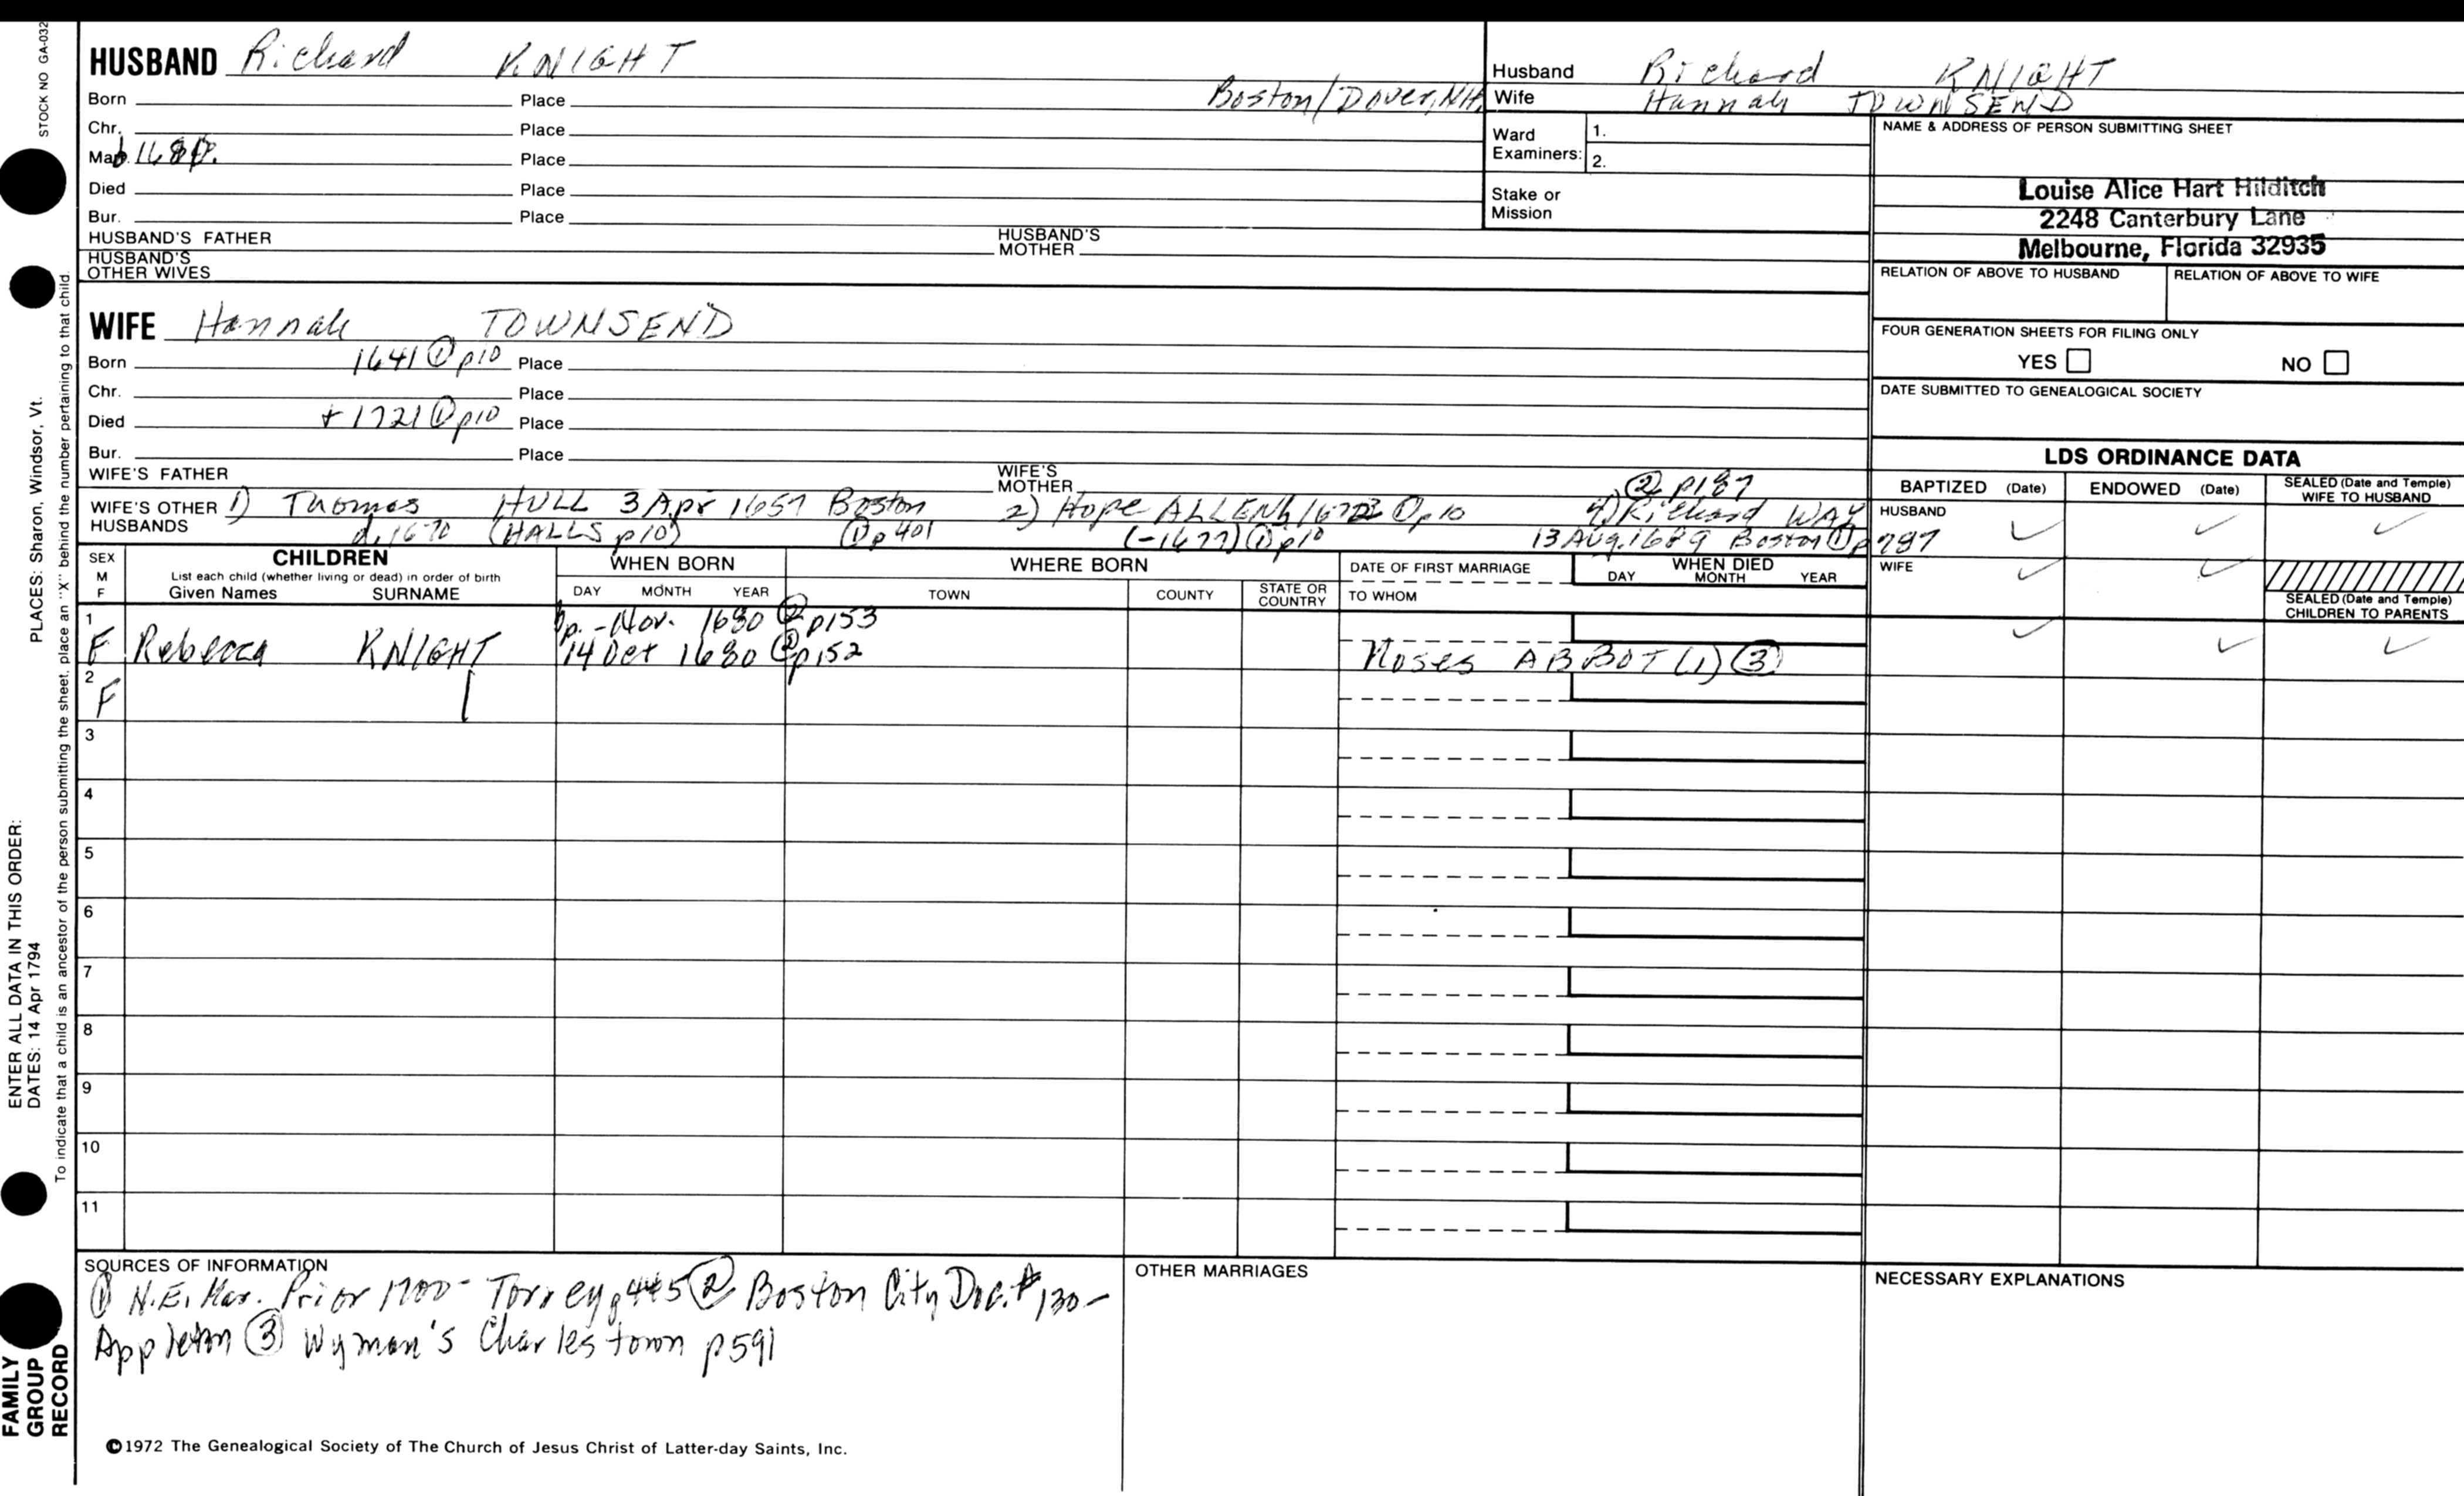 STOCK NO GA-032
HUSBAND Richard KNIGHT
Born Place Boston/Dover, NH
Chr. Place
Mar. b 1680. Place
Died Place
Bur. Place
HUSBAND'S FATHER HUSBAND'S MOTHER
HUSBAND'S OTHER WIVES
Husband Richard KNIGHT
Wife Hannah TOWNSEND
Ward Examiners: 1.
2.
Stake or Mission
NAME & ADDRESS OF PERSON SUBMITTING SHEET
Louise Alice Hart Hilditch
2248 Canterbury Lane
Melbourne, Florida 32935
RELATION OF ABOVE TO HUSBAND RELATION OF ABOVE TO WIFE
FOUR GENERATION SHEETS FOR FILING ONLY
YES NO
DATE SUBMITTED TO GENEALOGICAL SOCIETY
WIFE Hannah TOWNSEND
Born 1641 ① p10 Place
Chr. Place
Died + 1721 ① p10 Place
Bur. Place
WIFE'S FATHER WIFE'S MOTHER ② p187
WIFE'S OTHER HUSBANDS 1) Thomas HULL 3 Apr 1657 Boston 2) Hope ALLEN ① p10 4) Richard WAY
d. 1670 (HALLS p10) ① p401 (-1677) ① p10 13 Aug. 1689 Boston ① p787
LDS ORDINANCE DATA
BAPTIZED (Date) ENDOWED (Date) SEALED (Date and Temple) WIFE TO HUSBAND
HUSBAND ✓ ✓ ✓
WIFE ✓ ✓
SEALED (Date and Temple) CHILDREN TO PARENTS
✓ ✓ ✓
SEX M F
CHILDREN
List each child (whether living or dead) in order of birth
Given Names SURNAME
WHEN BORN
DAY MONTH YEAR
WHERE BORN
TOWN COUNTY STATE OR COUNTRY
DATE OF FIRST MARRIAGE
TO WHOM
WHEN DIED
DAY MONTH YEAR
1 - Nov. 1680 ② p153
F Rebecca KNIGHT 14 Oct 1680 p152 Moses ABBOT (1) ③
2
F
3
4
5
6
7
8
9
10
11
SOURCES OF INFORMATION
① N.E. Mar. Prior 1700 - Torrey p445 ② Boston City Doc. # 130 -
Appleton ③ Wyman's Charlestown p591
OTHER MARRIAGES
NECESSARY EXPLANATIONS
©1972 The Genealogical Society of The Church of Jesus Christ of Latter-day Saints, Inc.
FAMILY GROUP RECORD
ENTER ALL DATA IN THIS ORDER:
DATES: 14 Apr 1794
PLACES: Sharon, Windsor, Vt.
To indicate that a child is an ancestor of the person submitting the sheet, place an "X" behind the number pertaining to that child.